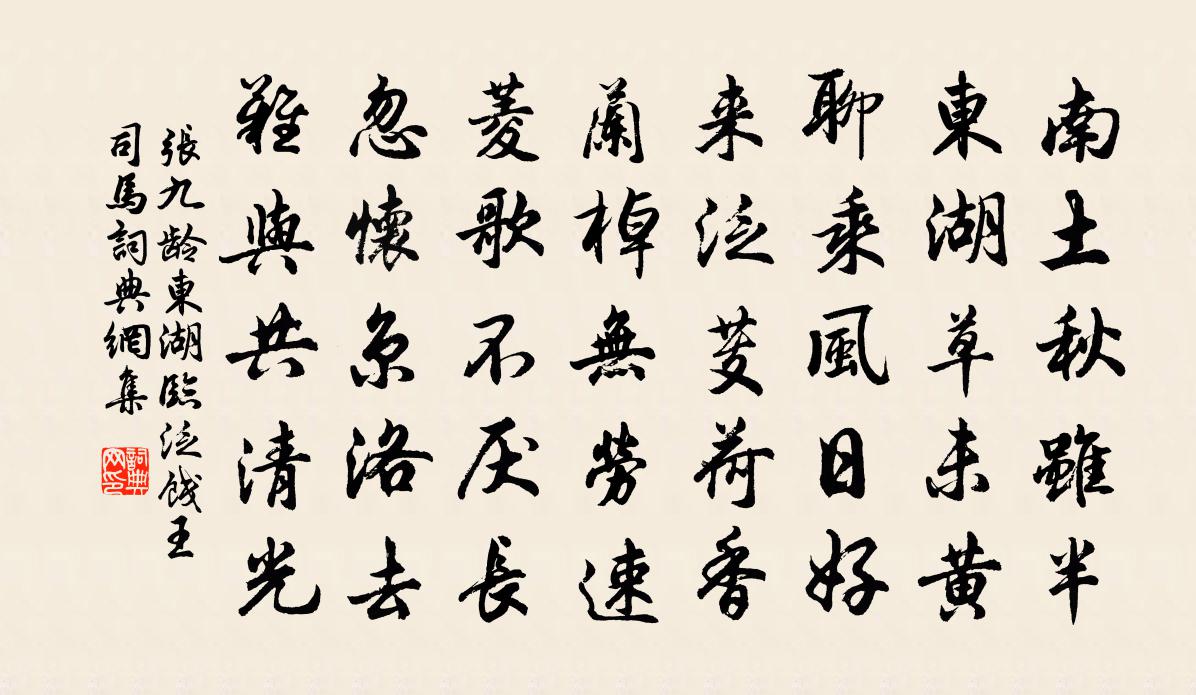 南土秋雖半
東湖草未黄
聊乘風日好
来泛芰荷香
蘭棹無勞速
菱歌不厌長
忽懷京洛去
難與共清光
張九龄東湖臨泛餞王
司馬詞典網集
詞典
网印